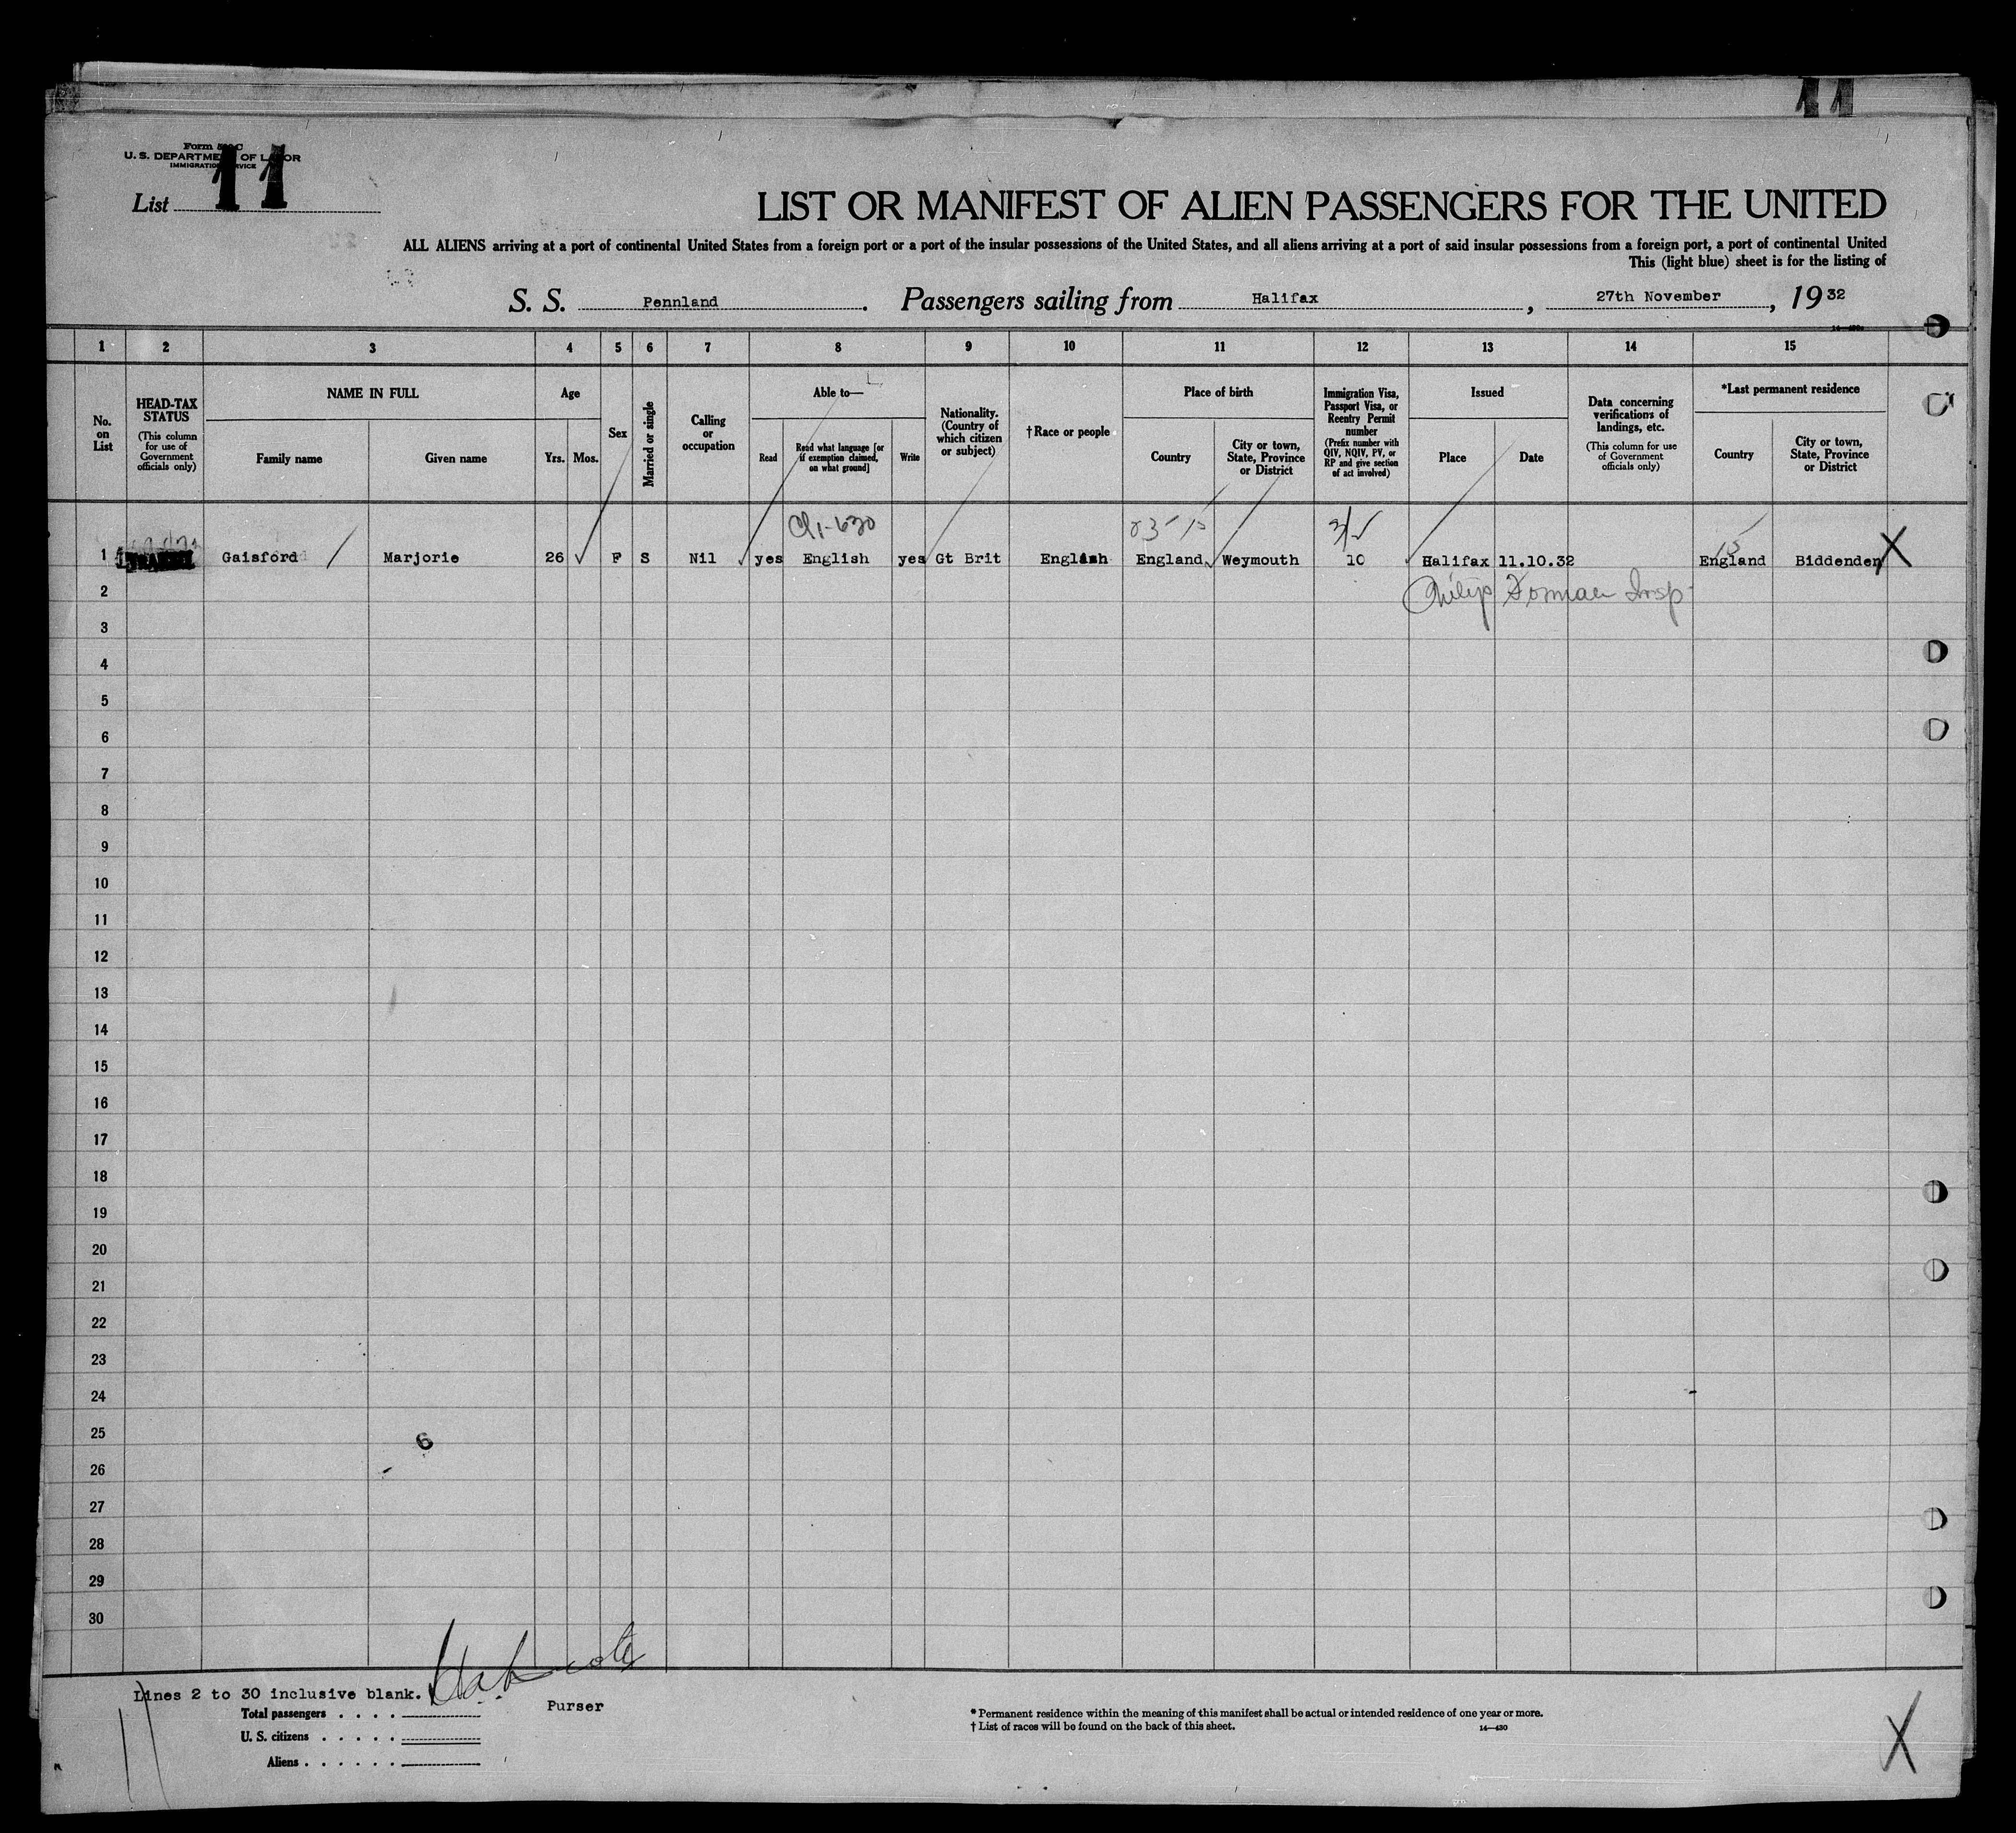 11
Form 500 C
U. S. DEPARTMENT OF LABOR
IMMIGRATION SERVICE
List 11
LIST OR MANIFEST OF ALIEN PASSENGERS FOR THE UNITED
ALL ALIENS arriving at a port of continental United States from a foreign port or a port of the insular possessions of the United States, and all aliens arriving at a port of said insular possessions from a foreign port, a port of continental United
This (light blue) sheet is for the listing of
S. S. Pennland. Passengers sailing from Halifax, 27th November, 1932
1 2 3 4 5 6 7 8 9 10 11 12 13 14 15
No. on List
HEAD-TAX STATUS
(This column for use of Government officials only)
NAME IN FULL
Family name
Given name
Age
Yrs. Mos.
Sex
Married or single
Calling or occupation
Able to—
Read
Read what language [or if exemption claimed, on what ground]
Write
Nationality. (Country of which citizen or subject)
†Race or people
Place of birth
Country
City or town, State, Province or District
Immigration Visa, Passport Visa, or Reentry Permit number
(Prefix number with QIV, NQIV, PV, or RP and give section of act involved)
Issued
Place
Date
Data concerning verifications of landings, etc.
(This column for use of Government officials only)
*Last permanent residence
Country
City or town, State, Province or District
1 Gaisford Marjorie 26 F S Nil yes English yes Gt Brit English England Weymouth 10 Halifax 11.10.32 England Biddenden X
2 Philip Insp
3
4
5
6
7
8
9
10
11
12
13
14
15
16
17
18
19
20
21
22
23
24
25
6
26
27
28
29
30
Lines 2 to 30 inclusive blank.
Purser
Total passengers . . . .
U. S. citizens . . . . .
Aliens . . . . . .
* Permanent residence within the meaning of this manifest shall be actual or intended residence of one year or more.
† List of races will be found on the back of this sheet.
14—430
X